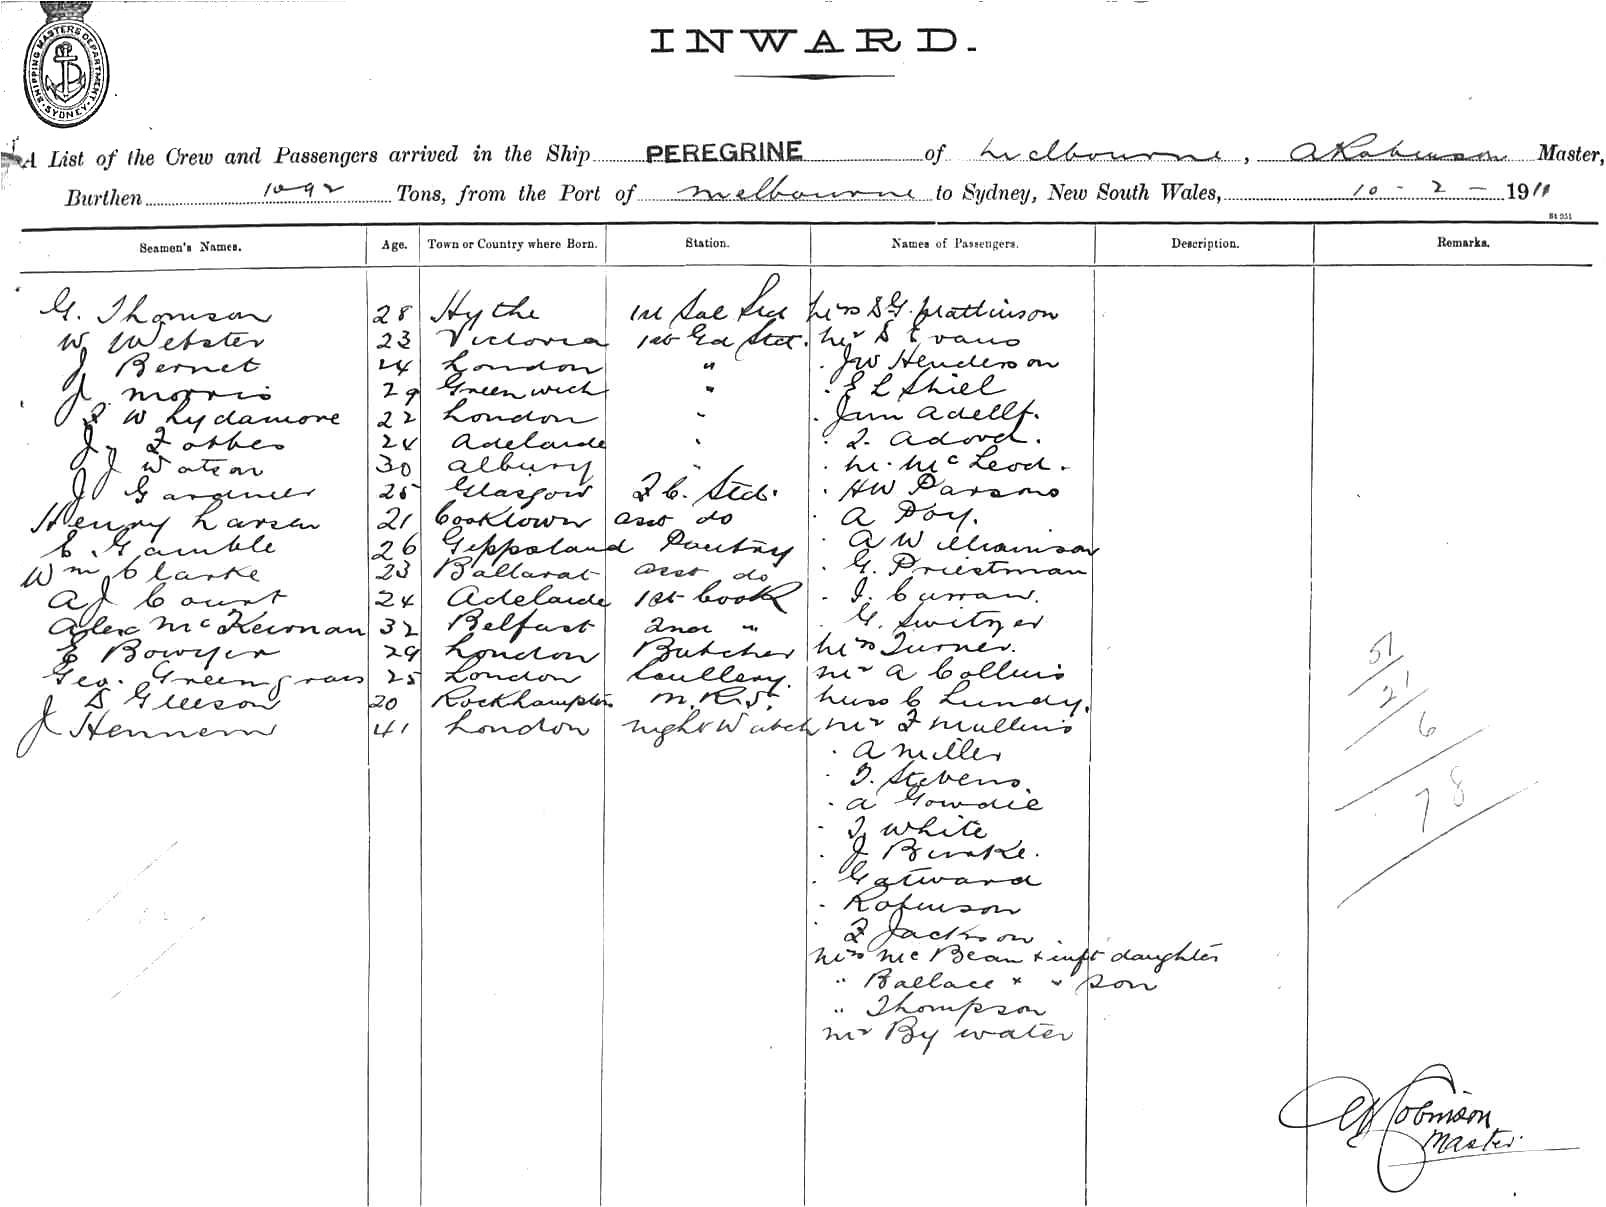 SHIPPING MASTERS DEPARTMENT
SYDNEY
INWARD.
A List of the Crew and Passengers arrived in the Ship PEREGRINE of Melbourne, A Robinson Master,
Burthen 1092 Tons, from the Port of Melbourne to Sydney, New South Wales, 10 - 2 - 1911
St 351
Seamen's Names. Age. Town or Country where Born. Station. Names of Passengers. Description. Remarks.
G. Thomson 28 Hythe 1st Sal Std Mrs S G. Mattinson
W Webster 23 Victoria 1st Gd Std. Mr S Evans
J Bernet 24 London " . JW Henderson
J Morris 29 Greenwich " . E L Shiel
W Lydamore 22 London " . Jim
J. Forbes 24 Adelaide "
J Watson 30 Albury " . M. McLeod.
J Gardner 25 Glasgow Std. . HW Parsons
Henry Larsen 21 Cooktown asst do . A
C. Gamble 26 Gippsland Pantry . A Williamson
Wm Clarke 23 Ballarat asst do . G. Priestman
A J Court 24 Adelaide 1st Cook . J. Curran.
Alex McKeirnan 32 Belfast 2nd " . G. Switzer
E Bowyer 29 London Butcher Mrs Turner.
Geo. Greengrass 25 London Scullery. Mr A Collins
S Gleeson 20 Rockhampton M.R.St. Miss C Lundy.
J Hennem 41 London Night Watch Mr F Mullins
. A Miller
. T. Stevens.
. A Gowdie
. T. White
. J Burke.
. Gatward
. Robinson
. F Jackson
Mrs McBean + inft daughter
" Ballace + " son
" Thompson
Mr Bywater
51
21
6
78
A Robinson
Master.